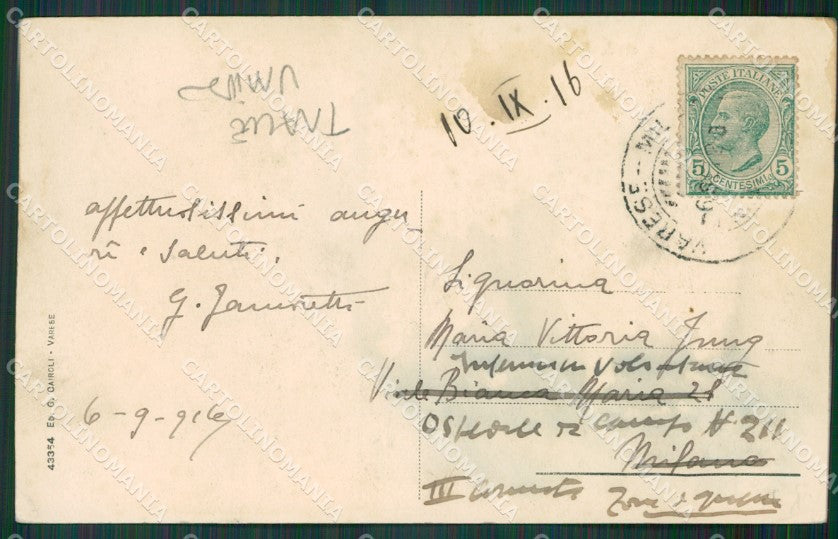 10.IX.16
POSTE ITALIANE
5 CENTESIMI 5
VARESE
affettuosissimi augu
ri e saluti.
G.
6-9-916
Signorina
Maria Vittoria Jung
Infermiera Volontaria
Viale Bianca Maria 28
Ospedale da Campo # 211
Milano
III Zona di guerra
43354 ED. G. CAIROLI - VARESE
CARTOLINOMANIA